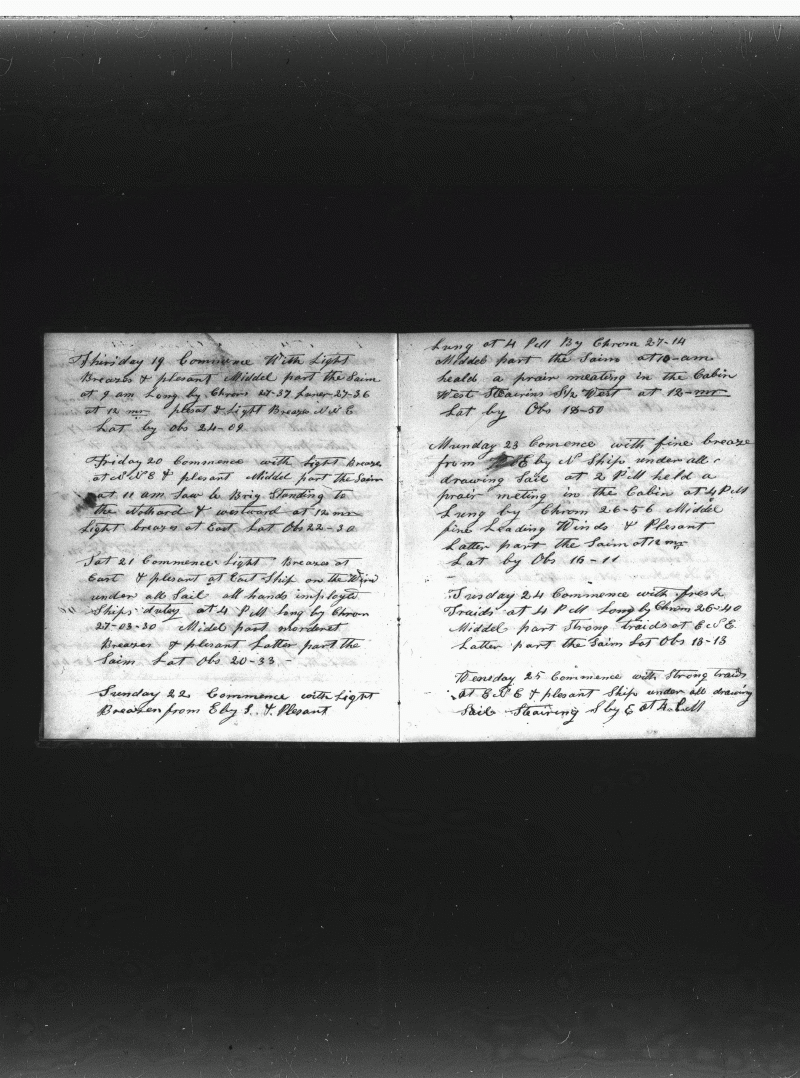 Thirsday 19 Commence With Light
Breazes & plesant Middel part the Saim
at 9 am Long by Chrom 27-37 Luner 27-36
at 12 mr plesat & Light Breazes N.N.E
Lat by Obs 24-09
Friday 20 Commence with Light Breaze
at N N E & plesant Middel part the Saim
at 11 am Saw a Brig Standing to
the Nothard & westward at 12 mr
Light breazes at East. Lat Obs 22-30
Sat 21 Commence Light Breazes at
East & plesant at East Ship on the Wind
under all Sail all hands imployde
Ships dutey at 4 P M Long by Chrom
27-03-30 Midel part morderet
Breazes & plesant Latter part the
Saim Lat Obs 20-33 -
Sunday 22 Commence with Light
Breazen from E by S. & Plesant
Lung at 4 P M By Chrom 27-14
Middel part the Saim at 10-am
heald a prair meating in the Cabin
West Stearins S1/2 West at 12-mr
Lat by Obs 18-50
Munday 23 Comence with fine breaze
from E by N Ship under all
drawing Sail at 2 P M held a
prair meting in the Cabin at 4 P M
Lung by Chrom 26-56 Middel
fine Leading Winds & Plesant
Latter part the Saim at 12 mr
Lat by Obs 16-11
Tusday 24 Commence with fresh
Traids at 4 P M Long by Chrom 26-40
Middel part Strong traids at E N E.
Latter part the Saim Lat Obs 13-13
Wensday 25 Commence with Strong traids
at E N E & plesant Ship under all drawing
Sail Stairing S by E at 4 P.M